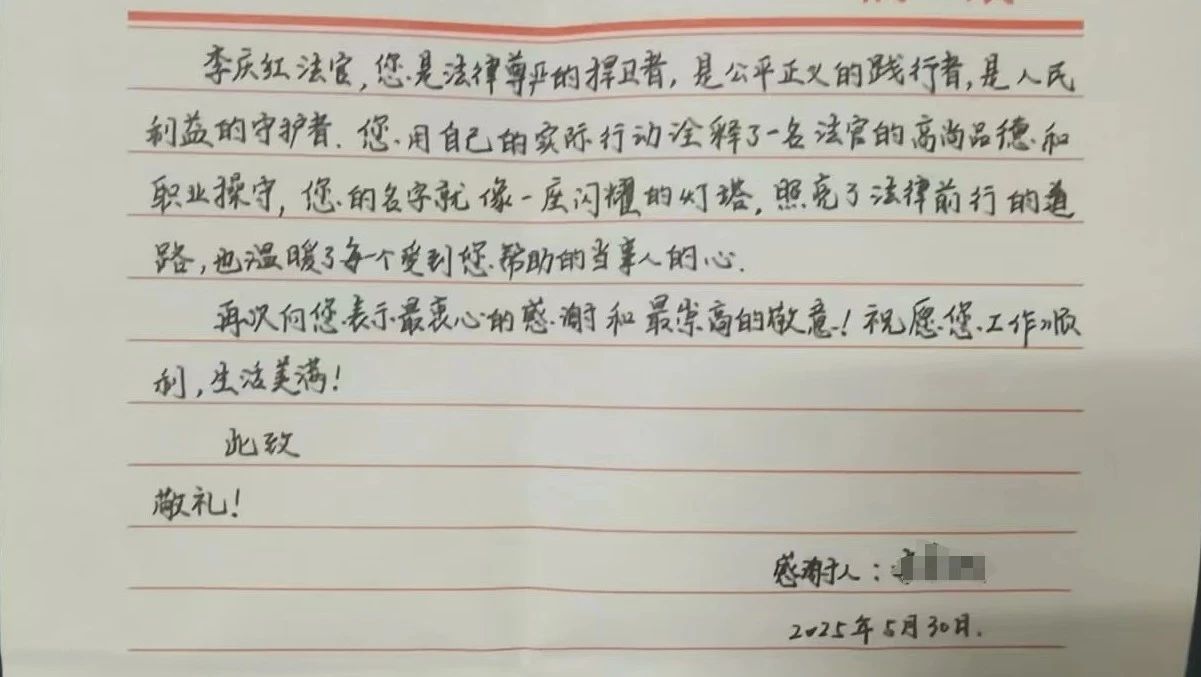 李庆红法官,您是法律尊严的捍卫者,是公平正义的践行者,是人民
利益的守护者.您用自己的实际行动诠释了一名法官的高尚品德和
职业操守,您的名字就像一座闪耀的灯塔,照亮了法律前行的道
路,也温暖了每一个受到您帮助的当事人的心.
再次向您表示最衷心的感谢和最崇高的敬意!祝愿您工作顺
利,生活美满!
此致
敬礼!
感谢人:
2025年5月30日.